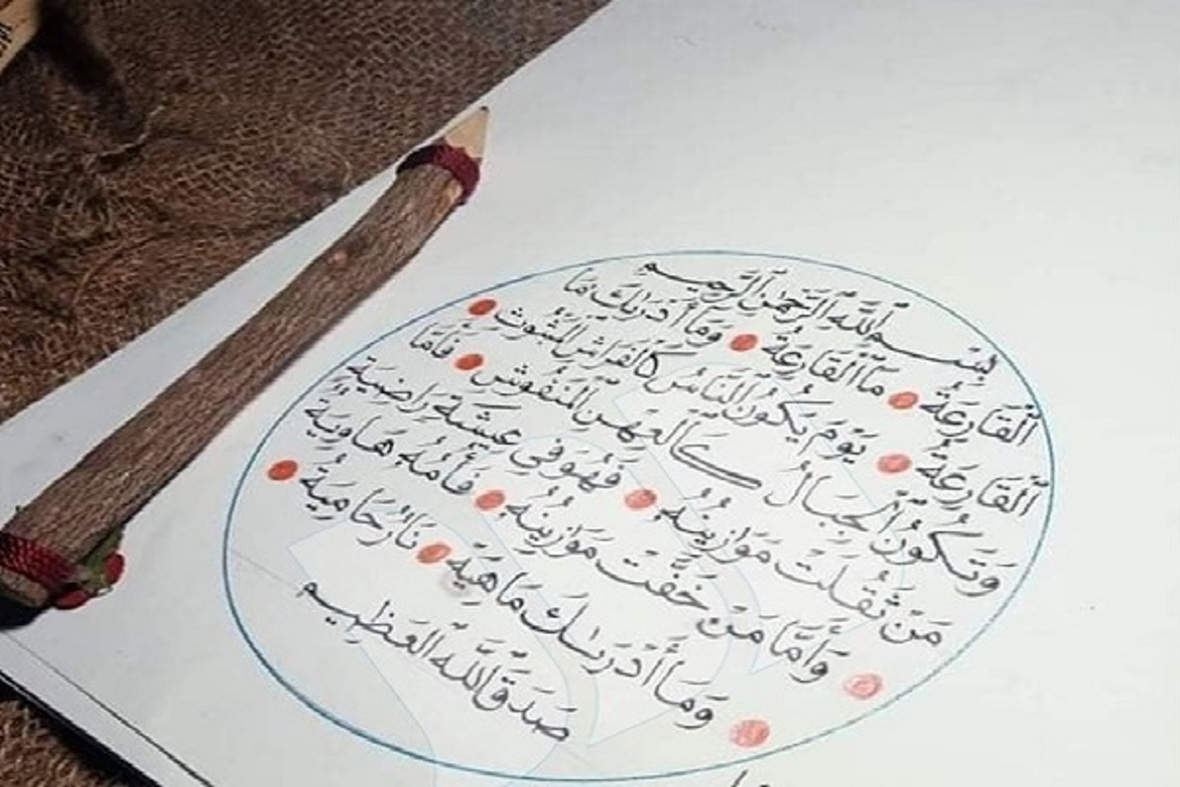 بِسْمِ ٱللَّهِ ٱلرَّحْمَٰنِ ٱلرَّحِيمِ
ٱلْقَارِعَةُ مَا ٱلْقَارِعَةُ وَمَا أَدْرَىٰكَ مَا
ٱلْقَارِعَةُ يَوْمَ يَكُونُ ٱلنَّاسُ كَٱلْفَرَاشِ ٱلْمَبْثُوثِ
وَتَكُونُ ٱلْجِبَالُ كَٱلْعِهْنِ ٱلْمَنْفُوشِ فَأَمَّا
مَنْ ثَقُلَتْ مَوَازِينُهُ فَهُوَ فِى عِيشَةٍ رَاضِيَةٍ
وَأَمَّا مَنْ خَفَّتْ مَوَازِينُهُ فَأُمُّهُ هَاوِيَةٌ
وَمَا أَدْرَىٰكَ مَا هِيَهْ نَارٌ حَامِيَةٌ
صَدَقَ ٱللَّهُ ٱلْعَظِيمِ